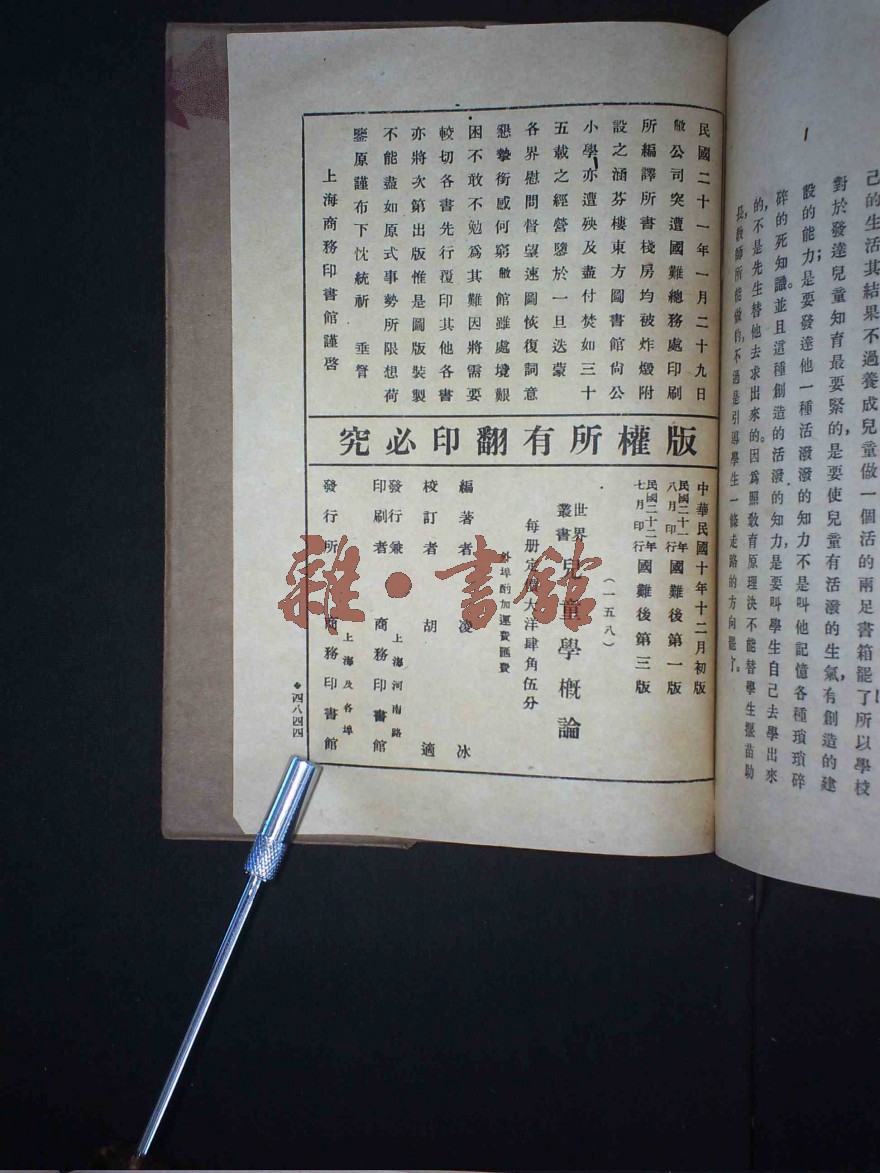 己的生活其結果不過養成兒童做一個活的兩足書箱罷了所以學校
對於發達兒童知育最要緊的是要使兒童有活潑的生氣，有創造的建
設的能力；是要發達他一種活潑潑的知力不是叫他記憶各種瑣瑣碎
碎的死知識。並且這種創造的活潑的知力，是要叫學生自己去學出來
的，不是先生替他去求出來的。因爲照教育原理決不能替學生揠苗助
長，教師所能做的，不過是引導學生一條走路的方向罷了。
民國二十一年一月二十九日
敝公司突遭國難總務處印刷
所編譯所書棧房均被炸燬附
設之涵芬樓東方圖書館尙公
小學亦遭殃及盡付焚如三十
五載之經營隳於一旦迭蒙
各界慰問督望速圖恢復詞意
懇摯銜感何窮敝館雖處境艱
困不敢不勉爲其難因將需要
較切各書先行覆印其他各書
亦將次第出版惟是圖版裝製
不能盡如原式事勢所限想荷
鑒原謹布下忱統祈 垂詧
上海商務印書館謹啓
究必印翻有所權版
中華民國十年十二月初版
民國二十一年八月印行 國難後第一版
民國二十二年七月印行 國難後第三版
(一五八)
世界叢書 兒童學概論
每册定價大洋肆角伍分
外埠酌加運費匯費
編著者 凌冰
校訂者 胡適
發行兼印刷者 上海河南路 商務印書館
發行所 上海及各埠 商務印書館
四八四四
雜·書館